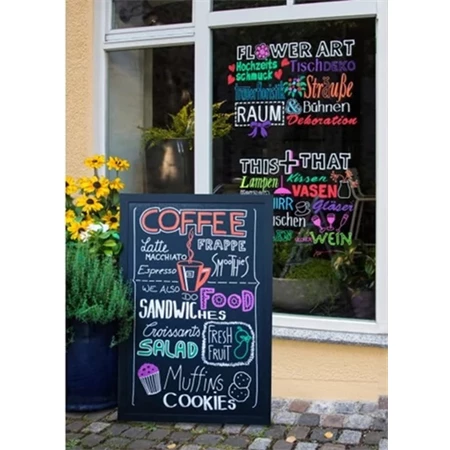 FLOWER ART
Hochzeits TischDEKO
schmuck
Trauerfloristik Sträuße
RAUM & Bühnen
Dekoration
THIS + THAT
Lampen Kissen
VASEN
Gläser
WEIN
COFFEE
Latte FRAPPE
MACCHIATO
Espresso Smoothies
WE ALSO
DO FOOD
SANDWICHES
Croissants FRESH
SALAD FRUIT
Muffins
COOKIES